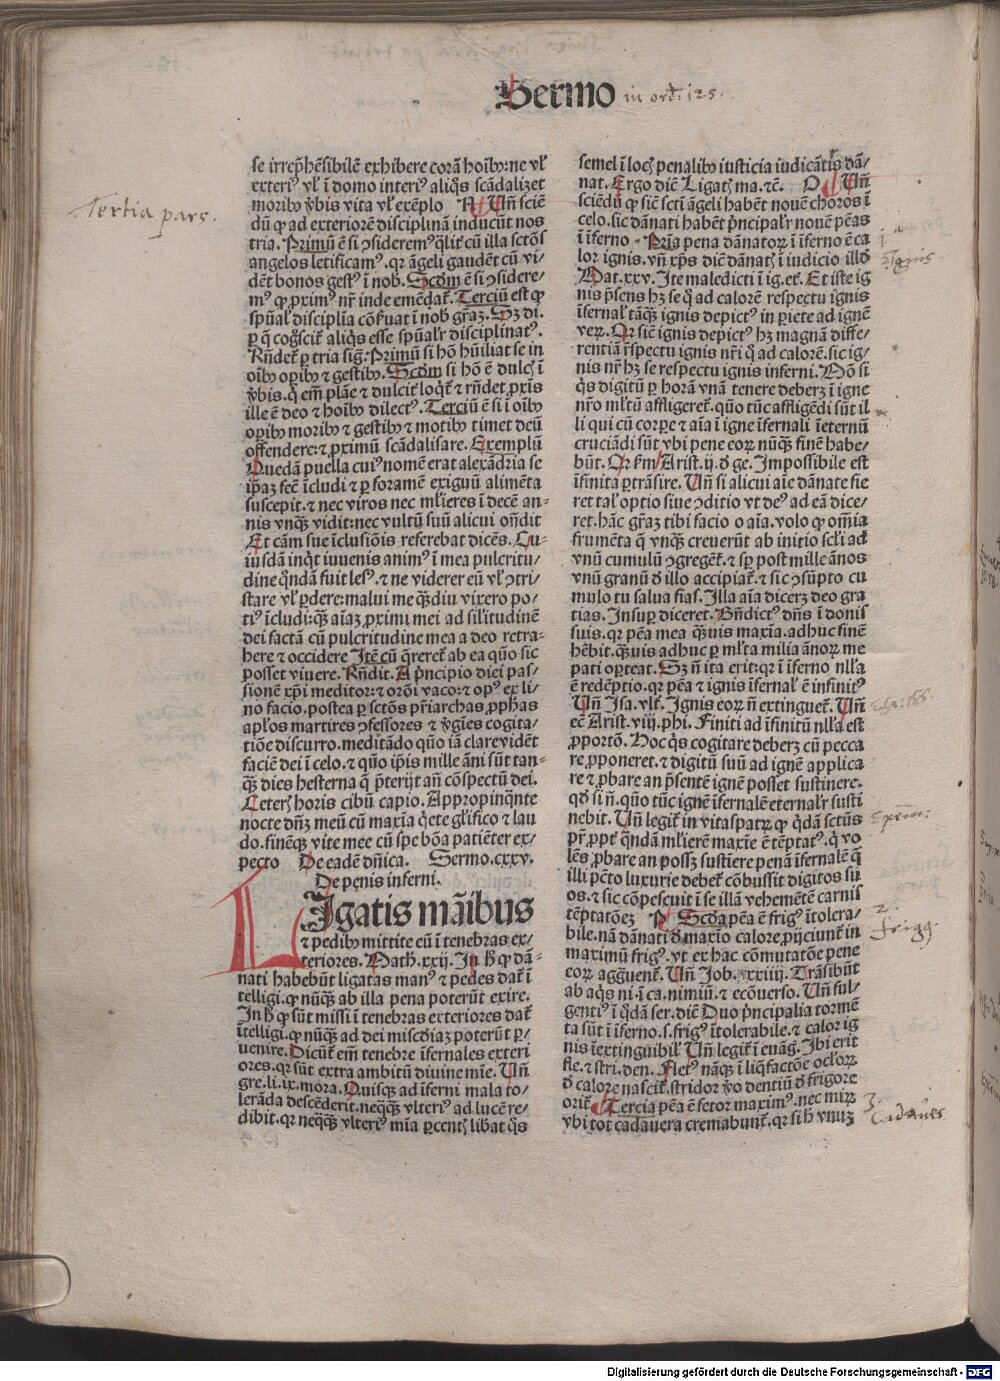 Sermo in ord: 125.
Tertia pars.
se irrep̄hēsibilē exhibere corā hoībꝰ: ne vl̄
exteriꝰ vl̄ ī domo interiꝰ aliq̄s scādalizet
moribꝰ v̄bis vita vl̄ exēplo N Vn̄ sciē
dū ꝙ ad exteriorē disciplinā inducūt nos
tria. Primū ē si ↄsideremꝰ qlit̄ cū illa sctōs
angelos letificamꝰ. qr āgeli gaudēt cū vi-
dēt bonos gestꝰ ī nob̄. Scd̄m ē si ↄsidere/
mꝰ ꝙ ꝓximꝰ nr̄ inde emēdat̄. Terciū est ꝙ
spūal̄ disciplīa cōẜuat ī nob̄ gr̄aꝫ. Sꝫ di.
ꝑ q̄ cog̊scit̄ aliq̄s esse spūal̄r disciplinatꝰ.
Rn̄det̄ ꝑ tria sig̊. Primū si hō hūiliat se in
oībꝰ oꝑibꝰ ⁊ gestibꝰ. Scd̄m si hō ē dulcꝭ ī
v̄bis. q̄ em̄ plāe ⁊ dulcit̄ loqt̄ ⁊ rn̄det ꝓxīs
ille ē deo ⁊ hoībꝰ dilectꝰ. Terciū ē si ī oībꝰ
oꝑibꝰ moribꝰ ⁊ gestibꝰ ⁊ motibꝰ timet deū
offendere: ⁊ ꝓximū scādalisare. Exemplū
Quedā puella cuiꝰ nomē erat alexādria se
ip̄aꝫ fec̄ īcludi ⁊ ꝑ foramē exiguū alimēta
suscepit. ⁊ nec viros nec ml̄ieres ī decē an-
nis vnq̄ꝫ vidit: nec vultū suū alicui on̄dit
Et cām sue īclusiōis referebat dicēs. Cu-
iusdā inq̄t iuuenis animꝰ ī mea pulcritu/
dine q̄ndā fuit lesꝰ. ⁊ ne viderer eū vl̄ ↄtri-
stare vl̄ ꝑdere: malui me qꝫdiu vixero po-
tiꝰ īcludi: qꝫ aīaꝫ ꝓximi mei ad sil̄itudinē
dei factā cū pulcritudine mea a deo retra-
here ⁊ occidere Itē cū q̄reret̄ ab ea quō sic
posset viuere. Rn̄dit. A p̄ncipio diei pas-
sionē xp̄i meditor: ⁊ orōi vaco: ⁊ opꝰ ex li/
no facio. postea ꝑ sctōs pr̄iarchas ꝓphas
aplos martires ↄfessores ⁊ v̄gīes cogita/
tiōe discurro. meditādo quō iā clare vidēt
faciē dei ī celo. ⁊ quō ip̄is mille āni sūt tan-
qꝫ dies hesterna q̄ p̄terijt an̄ cōspectū dei.
Ceterꝭ horis cibū capio. Appropinq̄nte
nocte dn̄ꝫ meū cū maxīa q̄ete glīfico ⁊ lau
do. finēqꝫ vite mee cū spe bōa patiēter ex/
pecto De eadē dn̄ica. Sermo.cxxv.
De penis inferni.
LIgatis māibus
⁊ pedibꝰ mittite eū ī tenebras ex/
teriores. Math̄. xxij. In h̄ ꝙ dā-
nati habebūt ligatas manꝰ ⁊ pedes dat̄ ī
telligi. ꝙ nūqꝫ ab illa pena poterūt exire.
In h̄ ꝙ sūt missi ī tenebras exteriores dat̄
ītelligi. ꝙ nūqꝫ ad dei misc̄diaꝫ poterūt ꝑ/
uenire. Dicūt̄ em̄ tenebre īfernales exteri
ores. qr sūt extra ambitū diuine mīe. Vn̄
gre. li. ix. mora. Quisqꝫ ad īferni mala to/
lerāda descēderit. neq̄qꝫ vlteriꝰ ad lucē re/
dibit. qr neq̄qꝫ vlteriꝰ mīa ꝑcentꝭ lib̄at q̄s
semel ī locꝭ penalibꝰ iusticia iudicātis dā/
nat. Ergo diē Ligatꝭ ma. ⁊c. O Vn̄
sciēdū ꝙ sic̄ scti āgeli habēt nouē choros ī
celo. sic dānati habēt p̄ncipal̄r nouē pēas
ī īferno. Prīa pena dānatoꝝ ī īferno ē ca
lor ignis. vn̄ xp̄s diē dānatꝭ ī iudicio illd̄
Mat. xxv. Ite maledicti ī ig. et̄. Et iste ig
nis p̄sens hꝫ se q̄ ad calorē respectu ignis
īfernal̄ tāqꝫ ignis depictꝰ in ꝑiete ad ignē
veꝝ. Qr sic̄ ignis depictꝰ hꝫ magnā diffe/
rentiā r̄spectu ignis nr̄i q̄ ad calorē. sic ig/
nis nr̄ hꝫ se respectu ignis inferni. Mō si
q̄s digitū ꝑ horā vnā tenere deberꝫ ī igne
nr̄o ml̄tū affligeret̄. quō tūc affligēdi sūt il
li qui cū corꝑe ⁊ aīa ī igne īfernali īeternū
cruciādi sūt vbi pene eoꝝ nūqꝫ finē habe/
būt. Qr ẜm Arist. ij. d̄ ge. Impossibile est
īfinita ꝑtrāsire. Vn̄ si alicui aīe dānate fie
ret tal̄ optio siue ↄditio vt deꝰ ad eā dice/
ret. hāc gr̄aꝫ tibi facio o aīa. volo ꝙ om̄ia
frumēta q̄ vnqꝫ creuerūt ab initio scl̄i ad
vnū cumulū ↄgreget̄. ⁊ sꝑ post mille ānos
vnū granū d̄ illo accipiat̄. ⁊ sic ↄsūpto cu
mulo tu salua fias. Illa aīa dicerꝫ deo gra
tias. Insuꝑ diceret. Bn̄dictꝰ dn̄s ī donis
suis. qr pēa mea qꝫuis maxīa. adhuc finē
hēbit. qꝫuis adhuc ꝑ ml̄ta milia ānoꝝ me
pati oꝑteat. Sꝫ n̄ ita erit: qr ī īferno nl̄la
ē redēptio. qr pēa ⁊ ignis īfernal̄ ē infinitꝰ
Vn̄ Isa. vlt̄. Ignis eoꝝ n̄ extinguet̄. Vn̄
ec̄ Arist. viij. phi. Finiti ad īfinitū nl̄la est
ꝓportō. Hoc q̄s cogitare deberꝫ cū pecca
re ꝓponeret. ⁊ digitū suū ad ignē applica
re ⁊ ꝓbare an p̄sentē ignē posset sustinere.
qd̄ si n̄. quō tūc ignē īfernalē eternal̄r susti
nebit. Vn̄ legit̄ in vitaspatꝝ ꝙ q̄dā sctūs
pr̄ ꝓpt̄ q̄ndā ml̄ierē maxīe ē tēptatꝰ. q̄ vo
lēs ꝓbare an possꝫ sustiere penā īfernalē q̄
illi pc̄to luxurie debet̄ cōbussit digitos su
os. ⁊ sic cōpescuit ī se illā vehemētē carnis
tēptatōeꝫ P Scd̄a pēa ē frigꝰ ītolera/
bile. nā dānati d̄ maxīo calore ꝓijciunt̄ in
maximū frigꝰ. vt ex hac cōmutatōe pene
eoꝝ aggūent̄. Vn̄ Job. xxiiij. Trāsibūt
ab aq̄s ni. ī ca. nimiū. ⁊ ecōuerso. Vn̄ ful/
gentiꝰ ī q̄dā ser. diē Duo p̄ncipalia tormē
ta sūt ī īferno. s. frigꝰ ītolerabile. ⁊ calor ig
nis īextinguibil̄ Vn̄ legit̄ ī euāg̊. Ibi erit
fle. ⁊ stri. den. Fletꝰ nāqꝫ ī liq̄factōe ocl̄oꝝ
d̄ calore nascit̄. stridor v̄o dentiū d̄ frigore
orit̄. Tercia pēa ē fetor maximꝰ. nec miꝝ
vbi tot cadauera cremabunt̄. qr si h̄ vnuꝫ
Ignis.
Exem:
2
Frigꝰ
3.
Cadauer
Digitalisierung gefördert durch die Deutsche Forschungsgemeinschaft - DFG